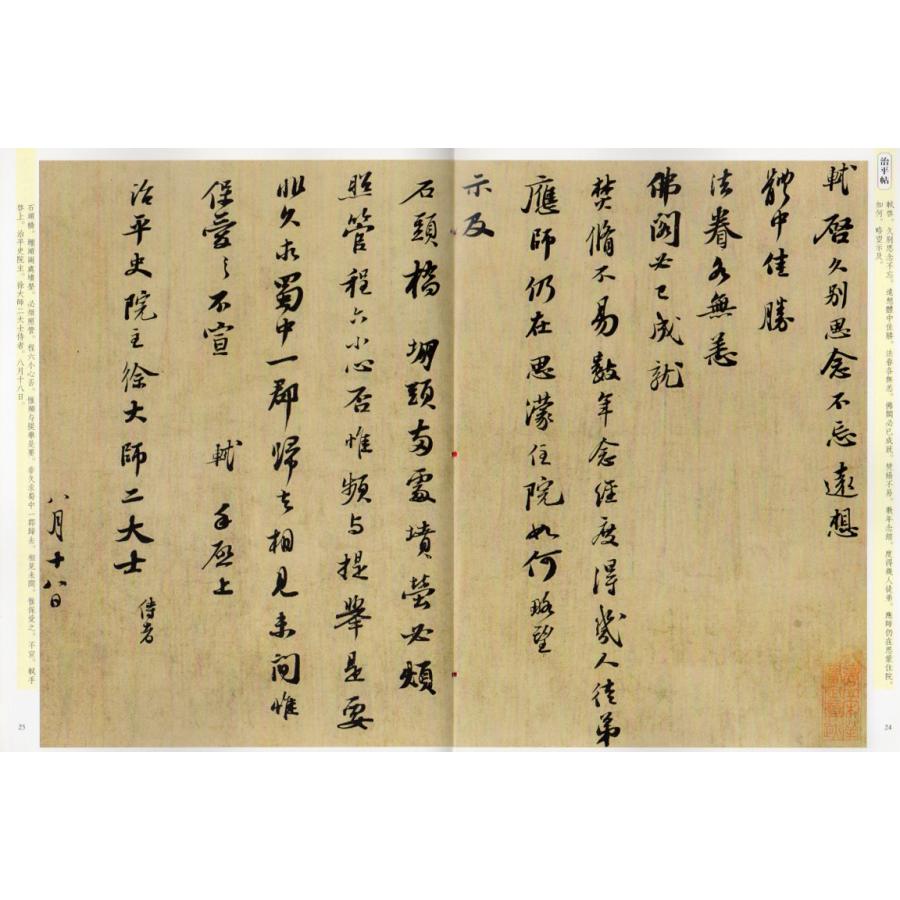 治平帖
軾啓。久別思念不忘。遠想體中佳勝。法眷各無恙。佛閣必已成就。焚脩不易。數年念經。度得幾人徒弟。應師仍在思蒙住院。
如何。略望示及。
24
軾啓久別思念不忘遠想
體中佳勝
法眷各無恙
佛閣必已成就
焚脩不易數年念經度得幾人徒弟
應師仍在思濛住院如何略望
示及
石頭橋堋頭兩處墳塋必煩
照管程六小心否惟頻与提舉是要
非久求蜀中一郡歸去相見未間惟
保愛之不宣 軾手啓上
治平史院主徐大師二大士 侍者
八月十八日
石頭橋。堋頭兩處墳塋。必煩照管。程六小心否。惟頻与提舉是要。非久求蜀中一郡歸去。相見未間。惟保愛之。不宣。軾手
啓上。治平史院主。徐大師二大士侍者。八月十八日。
25